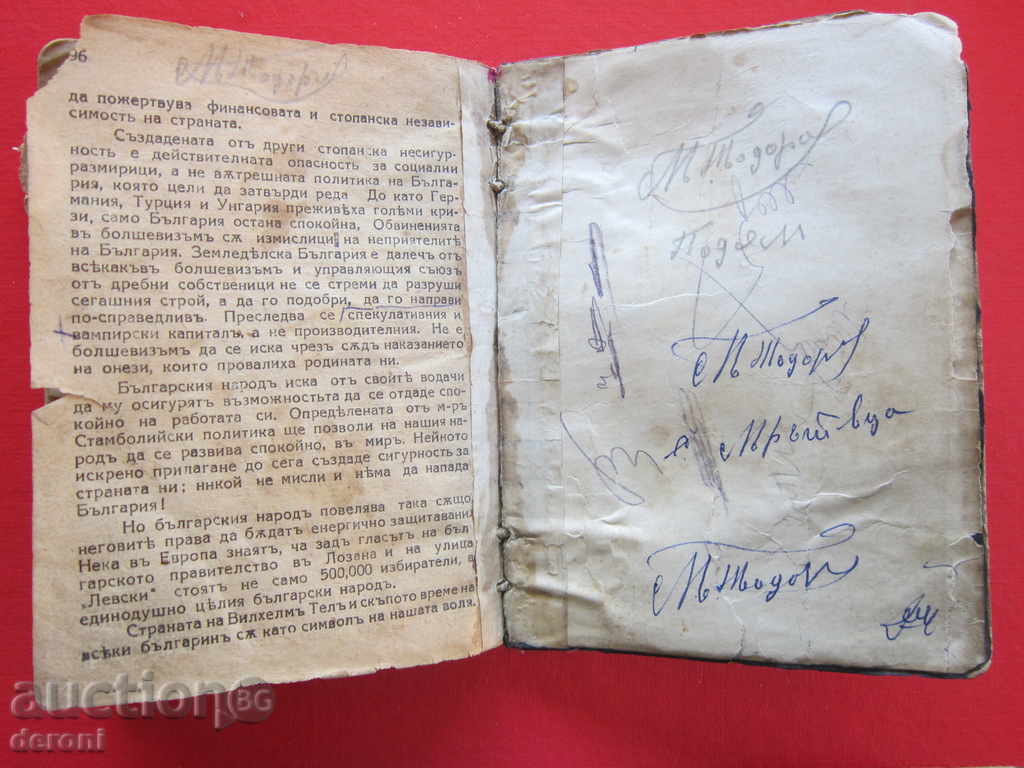 96
М Тодоров
да пожертвува финансовата и стопанска незави-
симость на страната.
Създадената отъ други стопанска несигур-
ность е действителната опасность за социални
размирици, а не вѫтрешната политика на Бълга-
рия, която цели да затвърди реда До като Гер-
мания, Турция и Унгария преживѣха голѣми кри-
зи, само България остана спокойна, Обвиненията
въ болшевизъмъ сѫ измислици на неприятелитѣ
на България. Земледѣлска България е далечъ отъ
всѣкакъвъ болшевизъмъ и управляющия съюзъ
отъ дребни собственици не се стреми да разруши
сегашния строй, а да го подобри, да го направи
по-справедливъ. Преследва се спекулативния и
вампирски капиталъ, а не производителния. Не е
болшевизъмъ да се иска чрезъ сѫдъ наказанието
на онези, които провалиха родината ни.
Българския народъ иска отъ своитѣ водачи
да му осигурятъ възможностьта да се отдаде спо-
койно на работата си. Опредѣлената отъ м-ръ
Стамболийски политика ще позволи на нашия на-
родъ да се развива спокойно, въ миръ. Нейното
искрено прилагане до сега създаде сигурность за
страната ни; никой не мисли и нѣма да напада
България!
Но българския народъ повелява така сѫщо
неговитѣ права да бѫдатъ енергично защитавани
Нека въ Европа знаятъ, ча задъ гласътъ на бъл
гарското правителство въ Лозана и на улица
„Левски" стоятъ не само 500,000 избиратели, а
единодушно цѣлия български народъ.
Страната на Вилхелмъ Телъ и скъпото време на
всѣки българинъ сѫ като символъ на нашата воля.
М. Тодоров
Подем
М Тодоров
я Мрътвца
М. Тодоров
auctionBG
deroni